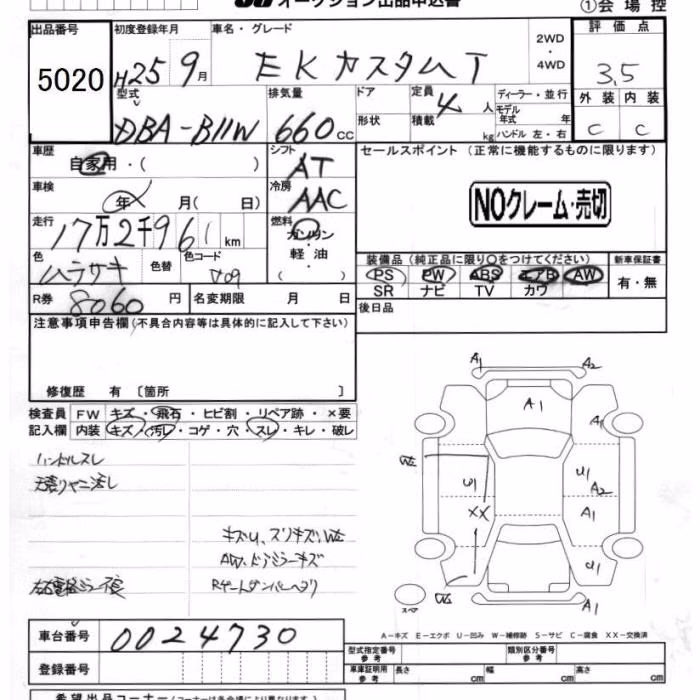 オークション出品申込書 ①会場控
出品番号 初度登録年月 車名・グレード 2WD・4WD 評価点
5020 H25 9月 EKカスタムT 3.5
型式 排気量 ドア 定員 4人 ディーラー・並行 外装 内装
DBA-B11W 660cc 形状 積載 kg モデル年式 年 ハンドル 左・右 C C
車歴 自家用・( ) シフト AT セールスポイント (正常に機能するものに限ります)
車検 年 月( 日) 冷房 AAC NOクレーム・売切
走行 17万2千961km 燃料 ガソリン・軽油・( )
装備品(純正品に限り○をつけてください) 新車保証書
色 ムラサキ 色替 色コード PS PW ABS エアB AW 有・無
SR ナビ TV カワ
R券 8060円 名変期限 月 日 後日品
注意事項申告欄(不具合内容等は具体的に記入して下さい)
修復歴 有 〔箇所 〕
検査員 FW キズ・飛石・ヒビ割・リペア跡・×要
記入欄 内装 キズ・汚レ・コゲ・穴・スレ・キレ・破レ
ハンドルスレ
キズU、スリキズ、WE
AW、ドアミラーキズ
A1 A2
A1 A1
U1
A2
XX A1
U1
スペア A1
A-キズ E-エクボ U-凹み W-補修跡 S-サビ C-腐食 XX-交換済
車台番号 0024730 型式指定番号 参考 類別区分番号 参考
登録番号 車庫証明用 参考 長さ cm 幅 cm 高さ cm
希望出品コーナー